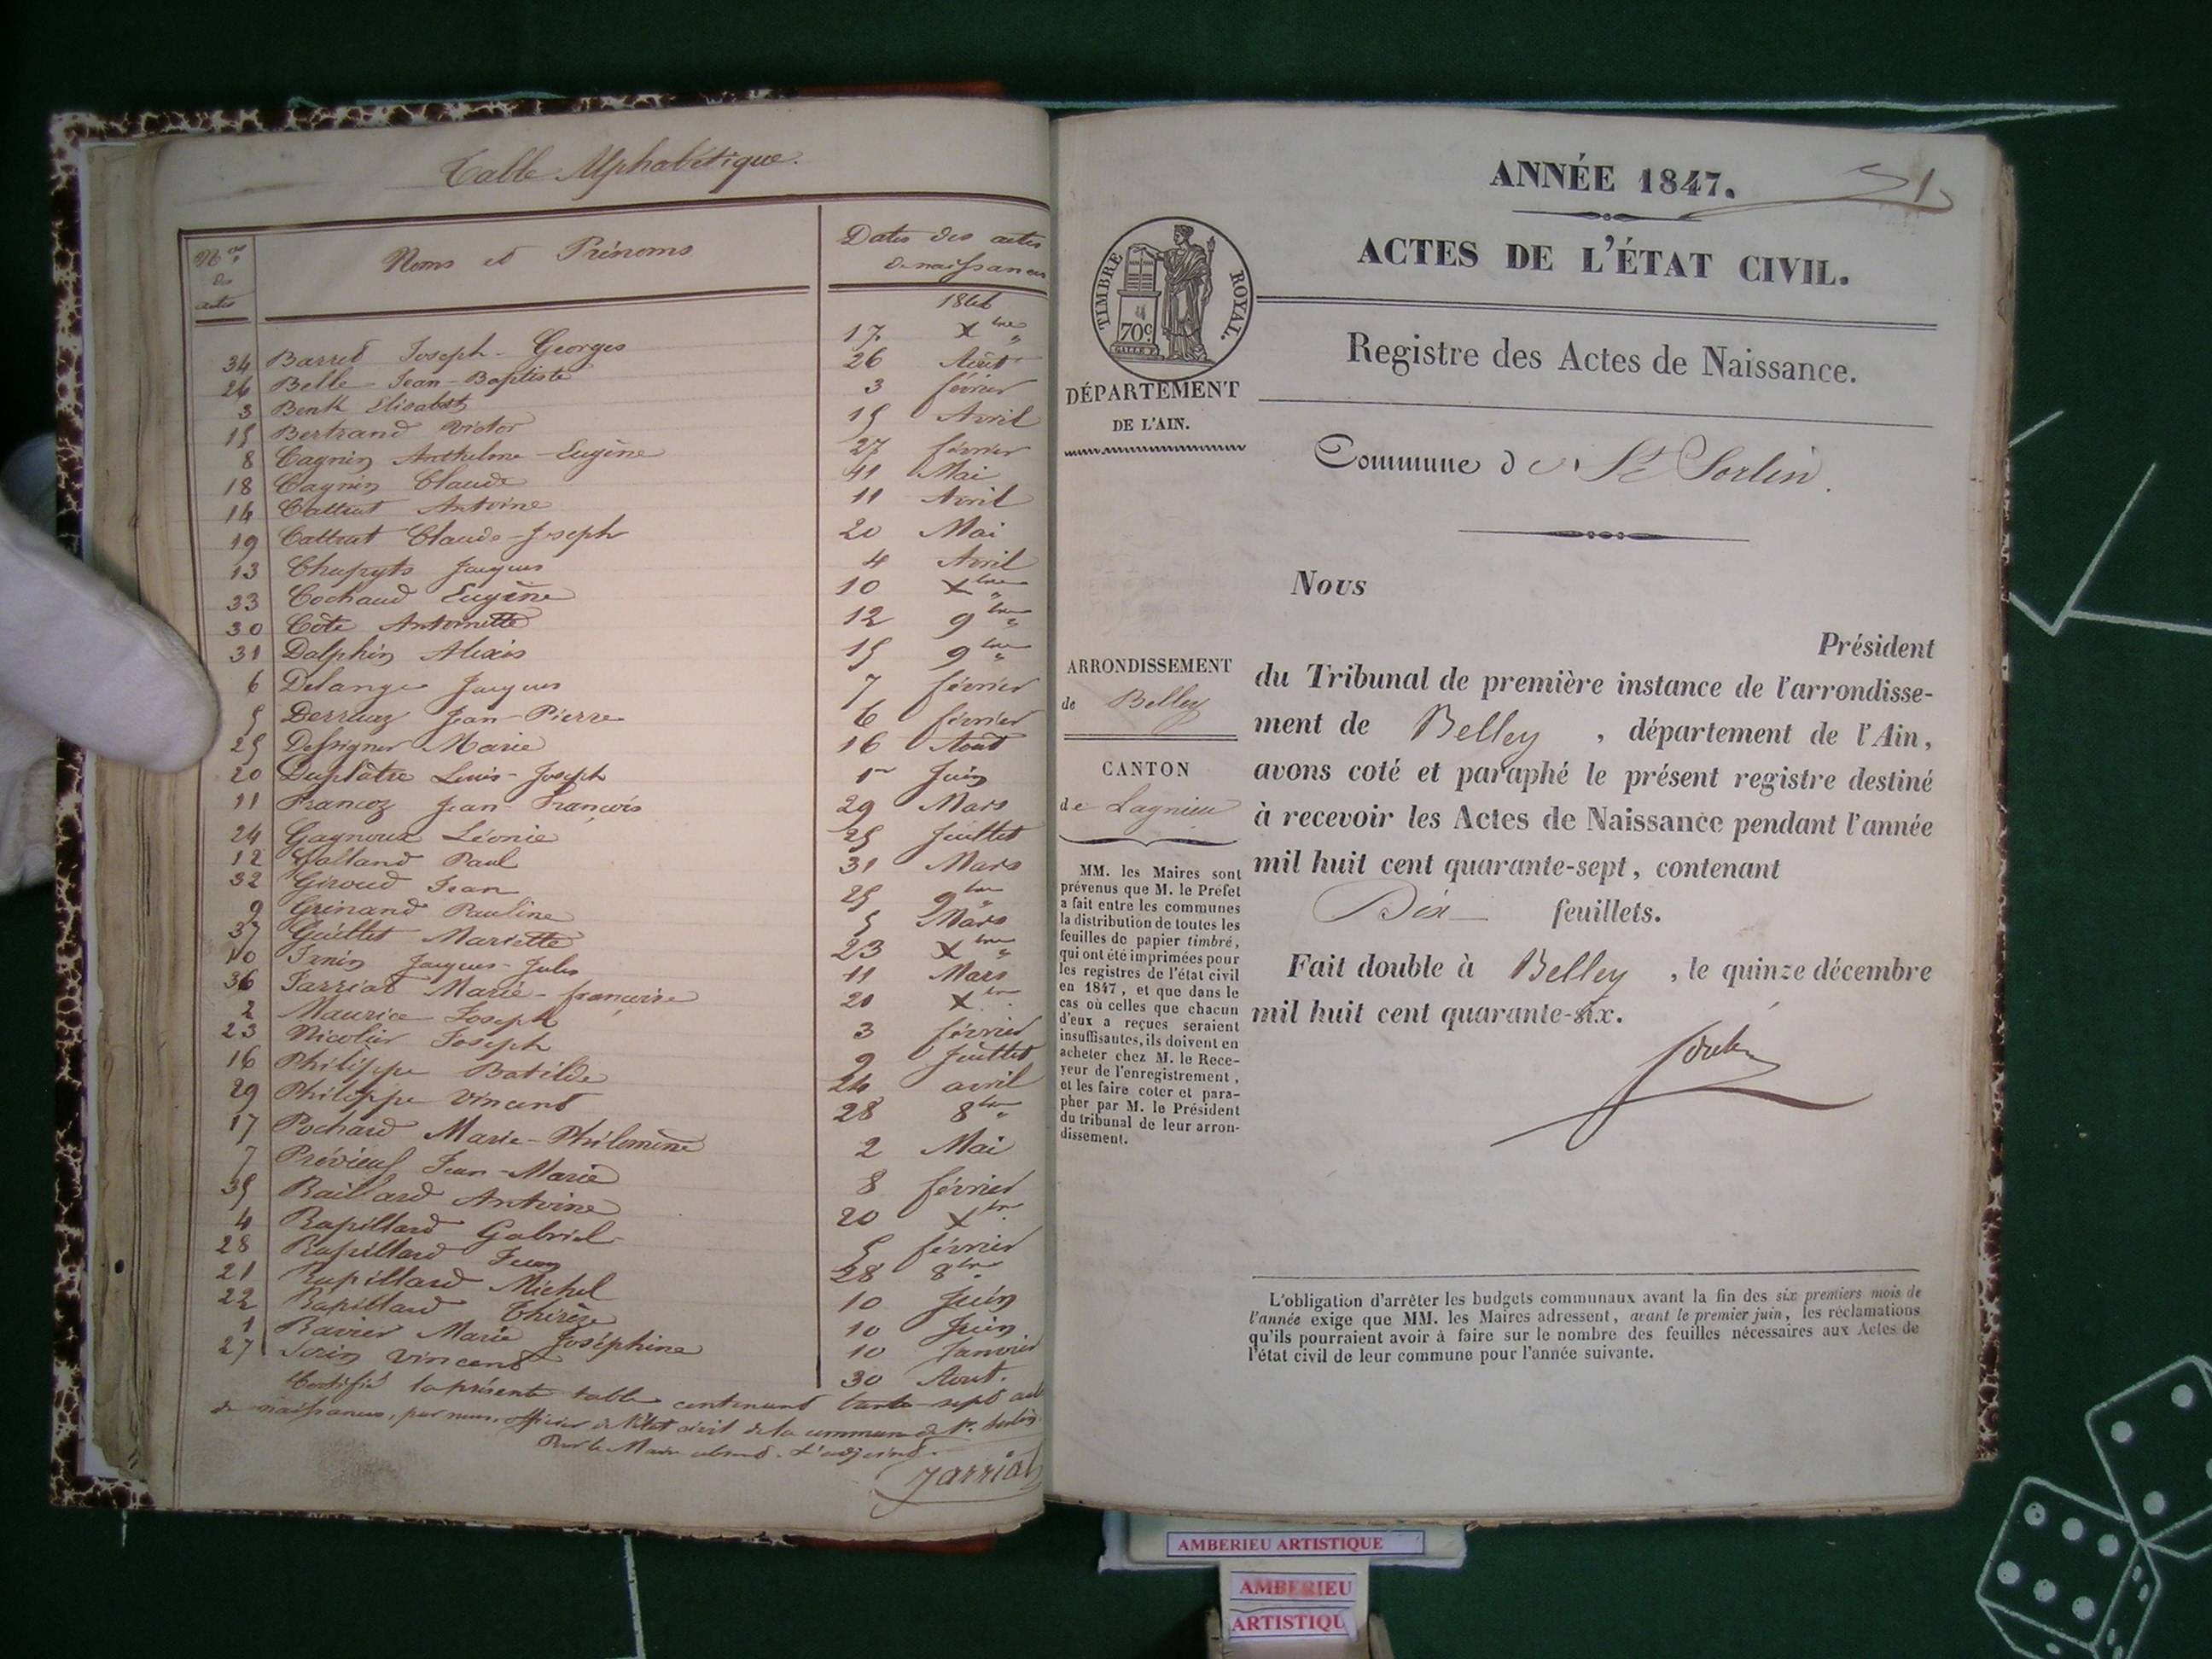 Table Alphabétique.
Nos des actes
Noms et Prénoms
Dates des actes de naissances
1846
34 Barret Joseph-Georges 17 Xbre "
26 Belle Jean-Baptiste 26 Août
3 Bonk Elisabeth 3 février
15 Bertrand Victor 15 Avril
8 Cagnin Anthelme-Eugène 27 février
18 Cagnin Claude 11 Mai
14 Cattrat Antoine 11 Avril
19 Cattrat Claude-Joseph 20 Mai
13 Jacques 4 Avril
33 Cochaud Eugène 10 Xbre "
30 Côte Antoinette 12 9bre "
31 Dolphin Alexis 15 9bre "
6 Delange Jacques 7 février
5 Derruaz Jean-Pierre 6 février
25 Marie 16 Août
20 Duplâtre Louis-Joseph 1er Juin
11 Francoz Jean François 29 Mars
24 Gagnoux Léonie 25 Juillet
12 Galland Paul 31 Mars
32 Giroud Jean 25 9bre "
9 Grinand Pauline 5 Mars
37 Guillet Mariette 23 Xbre "
10 Irnin Jacques-Jules 11 Mars
36 Jarriat Marie-françoise 20 Xbre
2 Maurice Joseph 3 février
23 Nicolier Joseph 9 Juillet
16 Philippe Batilde 24 avril
29 Philippe Vincent 28 8bre "
17 Pochard Marie-Philomène 2 Mai
7 Prévieux Jean-Marie 8 février
35 Raillard Antoine 20 Xbre
4 Rapillard Gabriel 5 février
28 Rapillard Jean 28 8bre
21 Rapillard Michel 10 Juin
22 Rapillard Thérèse 10 Juin
1 Ravier Marie Joséphine 10 Janvier
27 Sorin Vincent 30 Aout.
Certifié la présente table contenant trente-sept
de naissances, par nous, officier de l'état civil de la commune de St. Sorlin
Pour le Maire absent. L'adjoint.
Jarriat
ANNÉE 1847.
1
ACTES DE L'ÉTAT CIVIL.
TIMBRE ROYAL.
70c
Registre des Actes de Naissance.
DÉPARTEMENT
DE L'AIN.
Commune de St Sorlin.
Nous
Président
du Tribunal de première instance de l'arrondisse-
ment de Belley, département de l'Ain,
avons coté et paraphé le présent registre destiné
à recevoir les Actes de Naissance pendant l'année
mil huit cent quarante-sept, contenant
Dix feuillets.
Fait double à Belley, le quinze décembre
mil huit cent quarante-six.
ARRONDISSEMENT
de Belley
CANTON
de Lagnieu
MM. les Maires sont
prévenus que M. le Préfet
a fait entre les communes
la distribution de toutes les
feuilles de papier timbré,
qui ont été imprimées pour
les registres de l'état civil
en 1847, et que dans le
cas où celles que chacun
d'eux a reçues seraient
insuffisantes, ils doivent en
acheter chez M. le Rece-
veur de l'enregistrement,
et les faire coter et para-
pher par M. le Président
du tribunal de leur arron-
dissement.
L'obligation d'arrêter les budgets communaux avant la fin des six premiers mois de
l'année exige que MM. les Maires adressent, avant le premier juin, les réclamations
qu'ils pourraient avoir à faire sur le nombre des feuilles nécessaires aux Actes de
l'état civil de leur commune pour l'année suivante.
AMBERIEU ARTISTIQUE
AMBERIEU
ARTISTIQU